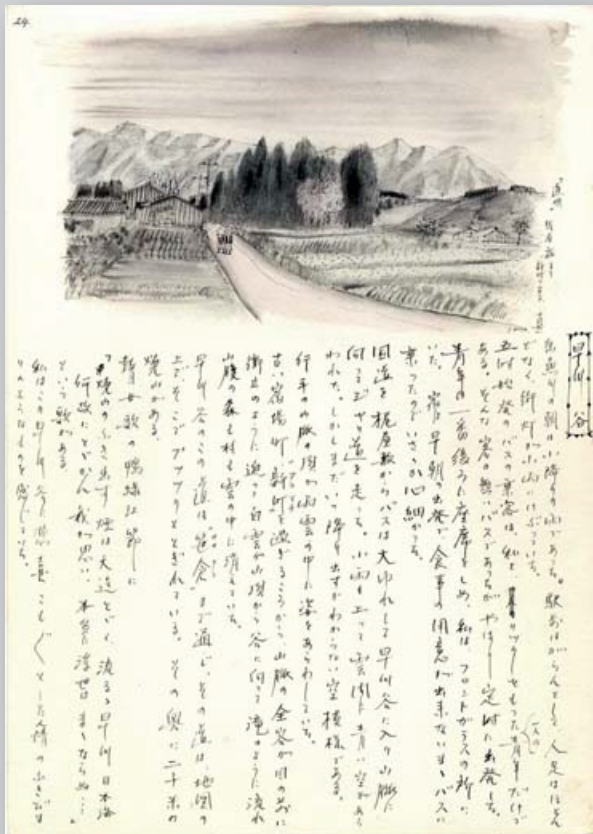 24
早川谷
糸魚川の朝は小降りの雨であった。駅前はがらんとして、人足はほとん
どなく街灯が小雨にけぶっていた。
五時始発のバスの乗客は、私とリックサックをもった一人の青年だけで
ある。そんな客の無いバスであるがやはり定時に出発した。
青年は一番後ろに座席をしめ、私はフロントガラスの近くに
いた。宿を早朝の出発で食事の用意が出来ないままバスに
乗ったのでいささか心細かった。
国道を梶屋敷からバスは大ゆれして早川谷に入り山脈に
向ってせり道を走った。小雨も上って雲間に青い空があら
われた。しかしまだいつ降り出すかわからない空模様である。
行手の山脈の頂が雨雲の中に姿をあらわしていた。
古い宿場町新町を過ぎるころから山脈の全容が目の前に
衝立のように迫って白雲が山頂から谷に向って滝のように流れ
山腹の森も村も雲の中に消えていた。
早川谷のこの道は"笹倉"まで通じ、その道は地図の
上でそこでプッツリととぎれている。その奥に二千米の
焼山がある。
瞽女歌の鴨緑江節に
「焼山のふき出す煙は大空とどく流るゝ早川日本海
行政にとどかん我が思い 本当に浮世はまゝならぬ…」
という歌がある
私はこの早川谷に悲喜こもごもとした情のふきだま
りのようなものを感じていた。